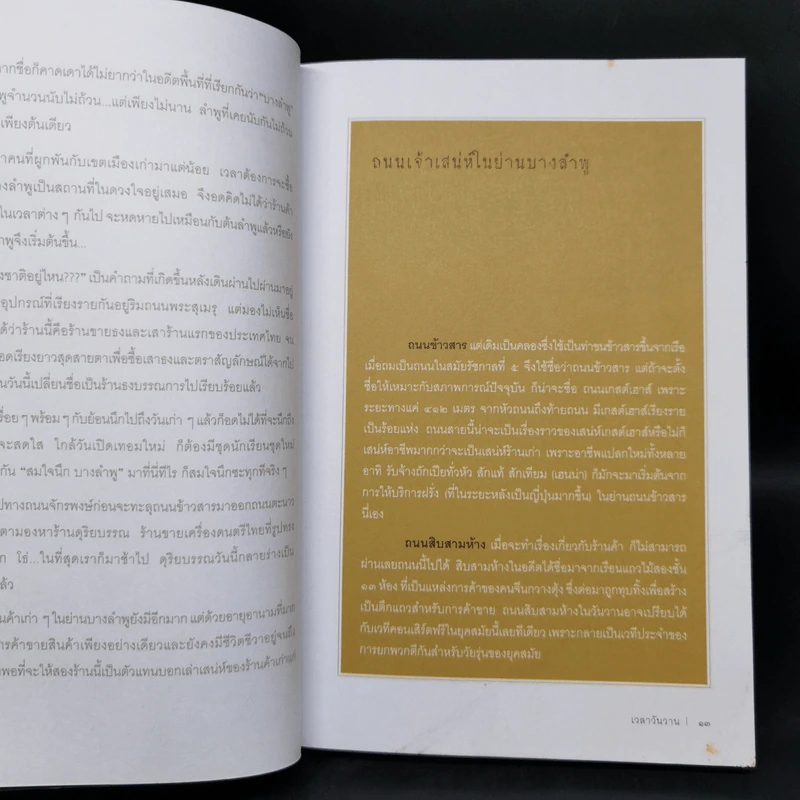 ากชื่อก็คาดเดาได้ไม่ยากว่าในอดีตพื้นที่ที่เรียกกันว่า“บางลำพู”
พูจำนวนนับไม่ถ้วน...แต่เพียงไม่นาน ลำพูที่เคยนับกันไม่ถ้วน
เพียงต้นเดียว
าคนที่ผูกพันกับเขตเมืองเก่ามาแต่น้อย เวลาต้องการจะซื้อ
งลำพูเป็นสถานที่ในดวงใจอยู่เสมอ จึงอดคิดไม่ได้ว่าร้านค้า
ในเวลาต่าง ๆ กันไป จะหดหายไปเหมือนกับต้นลำพูแล้วหรือยัง
าพูจึงเริ่มต้นขึ้น...
งชาติอยู่ไหน???” เป็นคำถามที่เกิดขึ้นหลังเดินผ่านไปผ่านมาอยู่
อุปกรณ์ที่เรียงรายกันอยู่ริมถนนพระสุเมรุ แต่มองไม่เห็นชื่อ
ได้ว่าร้านนี้คือร้านขายธงและเสาร้านแรกของประเทศไทย จน
อดเรียงยาวสุดสายตาเพื่อซื้อเสาธงและตราสัญลักษณ์ได้จากไป
วันนี้เปลี่ยนชื่อเป็นร้านธงบรรณการไปเรียบร้อยแล้ว
รื่อย ๆ พร้อม ๆ กับย้อนนึกไปถึงวันเก่า ๆ แล้วก็อดไม่ได้ที่จะนึกถึง
จะสดใส ใกล้วันเปิดเทอมใหม่ ก็ต้องมีชุดนักเรียนชุดใหม่
กัน “สมใจนึก บางลำพู” มาที่นี่ทีไร ก็สมใจนึกซะทุกทีจริง ๆ
ปทางถนนจักรพงษ์ก่อนจะทะลุถนนข้าวสารมาออกถนนตะนาว
ตามองหาร้านดุริยบรรณ ร้านขายเครื่องดนตรีไทยที่รูปทรง
ก โธ่...ในที่สุดเราก็มาช้าไป ดุริยบรรณวันนี้กลายร่างเป็น
แล้ว
นค้าเก่า ๆ ในย่านบางลำพูยังมีอีกมาก แต่ด้วยอายุอานามที่มาก
การค้าขายสินค้าเพียงอย่างเดียวและยังคงมีชีวิตชีวาอยู่จนถึง
พอที่จะให้สองร้านนี้เป็นตัวแทนบอกเล่าเสน่ห์ของร้านค้าเก่าแก่
ถนนเจ้าเสน่ห์ในย่านบางลำพู
ถนนข้าวสาร แต่เดิมเป็นคลองซึ่งใช้เป็นท่าขนข้าวสารขึ้นจากเรือ
เมื่อถมเป็นถนนในสมัยรัชกาลที่ ๕ จึงใช้ชื่อว่าถนนข้าวสาร แต่ถ้าจะตั้ง
ชื่อให้เหมาะกับสภาพการณ์ปัจจุบัน ก็น่าจะชื่อ ถนนเกสต์เฮาส์ เพราะ
ระยะทางแค่ ๔๑๒ เมตร จากหัวถนนถึงท้ายถนน มีเกสต์เฮาส์เรียงราย
เป็นร้อยแห่ง ถนนสายนี้น่าจะเป็นเรื่องราวของเสน่ห์เกสต์เฮาส์หรือไม่ก็
เสน่ห์อาชีพมากกว่าจะเป็นเสน่ห์ร้านเก่า เพราะอาชีพแปลกใหม่ทั้งหลาย
อาทิ รับจ้างถักเปียทั่วหัว สักแท้ สักเทียม (เฮนน่า) ก็มักจะมาเริ่มต้นจาก
การให้บริการฝรั่ง (ที่ในระยะหลังเป็นญี่ปุ่นมากขึ้น) ในย่านถนนข้าวสาร
นี่เอง
ถนนสิบสามห้าง เมื่อจะทำเรื่องเกี่ยวกับร้านค้า ก็ไม่สามารถ
ผ่านเลยถนนนี้ไปได้ สิบสามห้างในอดีตได้ชื่อมาจากเรือนแถวไม้สองชั้น
๑๓ ห้อง ที่เป็นแหล่งการค้าของคนจีนกวางตุ้ง ซึ่งต่อมาถูกทุบทิ้งเพื่อสร้าง
เป็นตึกแถวสำหรับการค้าขาย ถนนสิบสามห้างในวันวานอาจเปรียบได้
กับเวทีคอนเสิร์ตฟรีในยุคสมัยนี้เลยทีเดียว เพราะกลายเป็นเวทีประจำของ
การยกพวกตีกันสำหรับวัยรุ่นของยุคสมัย
เวลาวันวาน | ๑๓